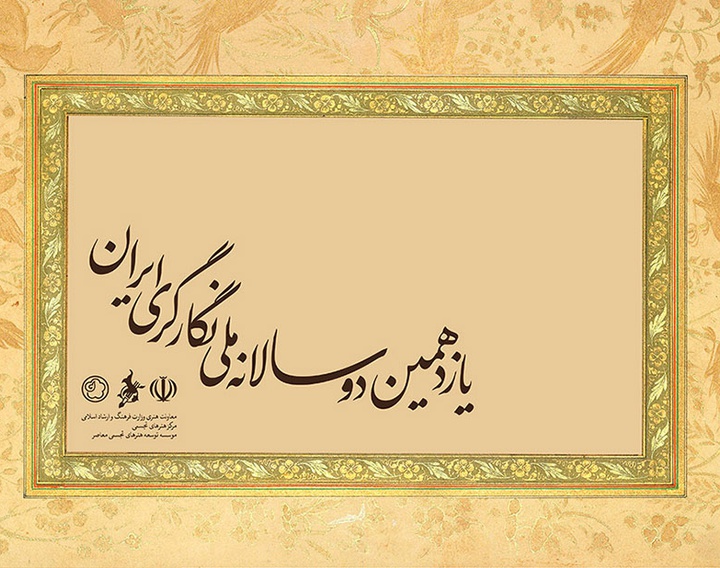 یازدهمین دوسالانه ملی نگارگری ایران
معاونت هنری وزارت فرهنگ و ارشاد اسلامی
مرکز هنرهای تجسمی
موسسه توسعه هنرهای تجسمی معاصر